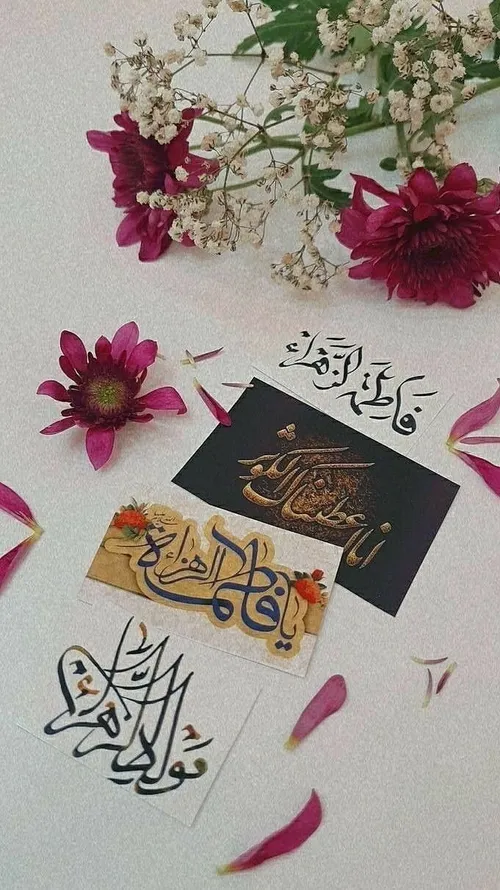 فاطمة الزهراء
انا اعطیناک الکوثر
یا فاطمة الزهراء
مولاتی الزهراء